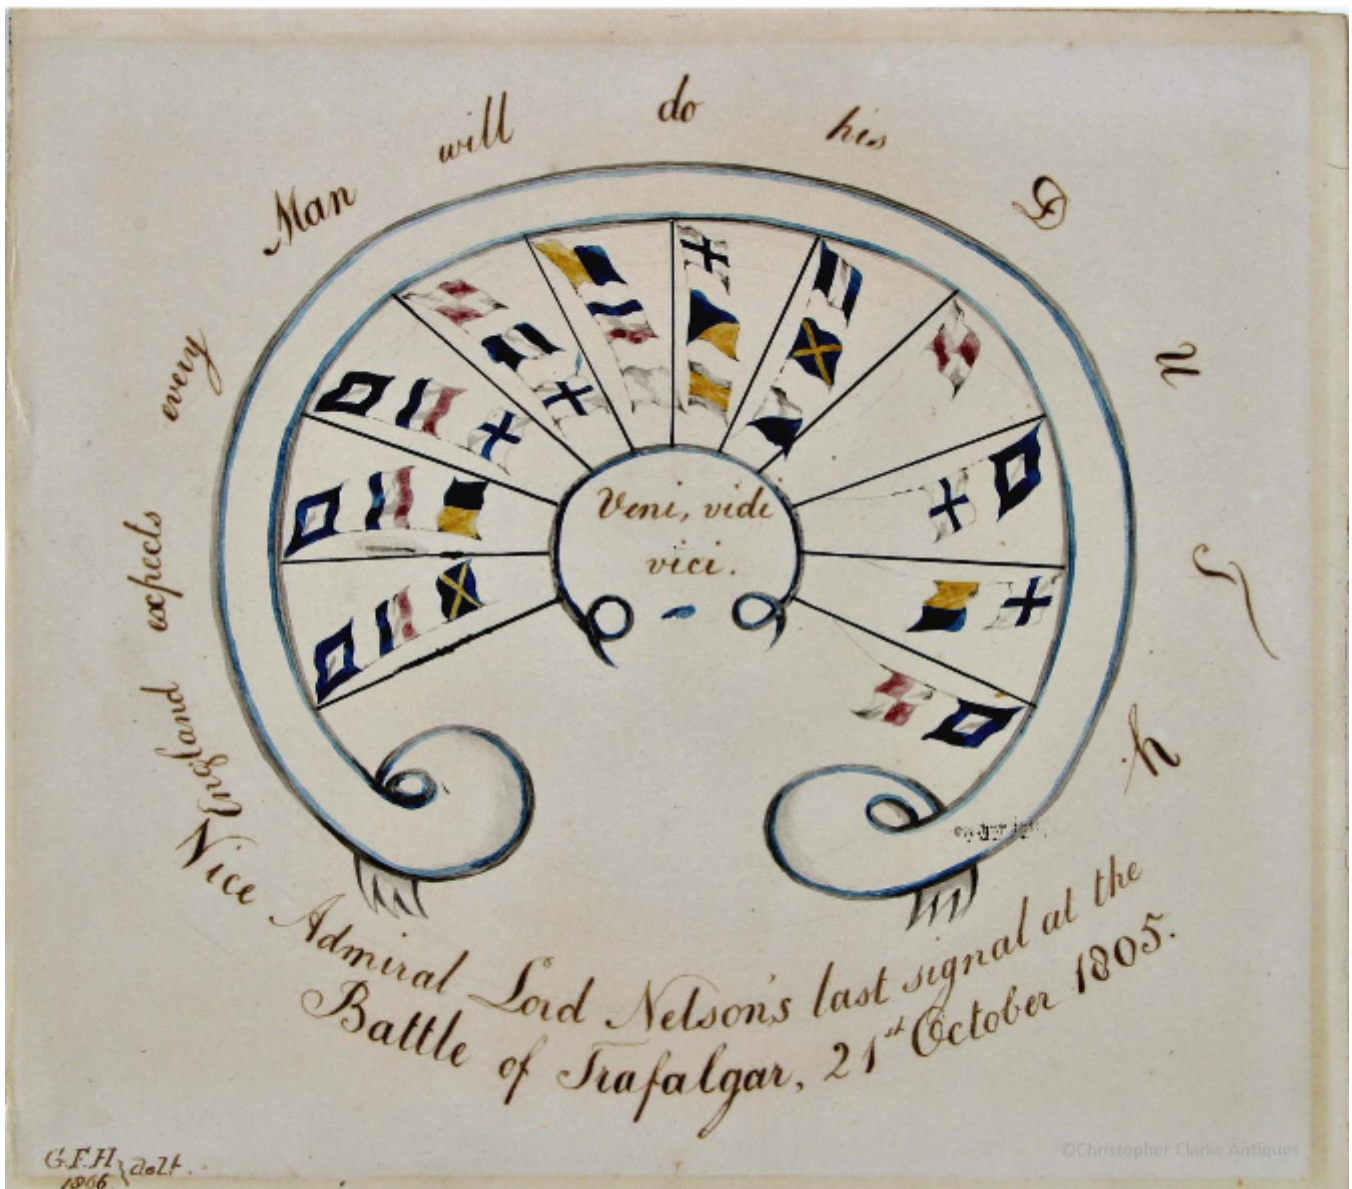 England expects every Man will do his D u T y
Veni, vidi
vici.
Vice Admiral Lord Nelson's last signal at the
Battle of Trafalgar, 21st October 1805.
G.F.H
1866
©Christopher Clarke Antiques